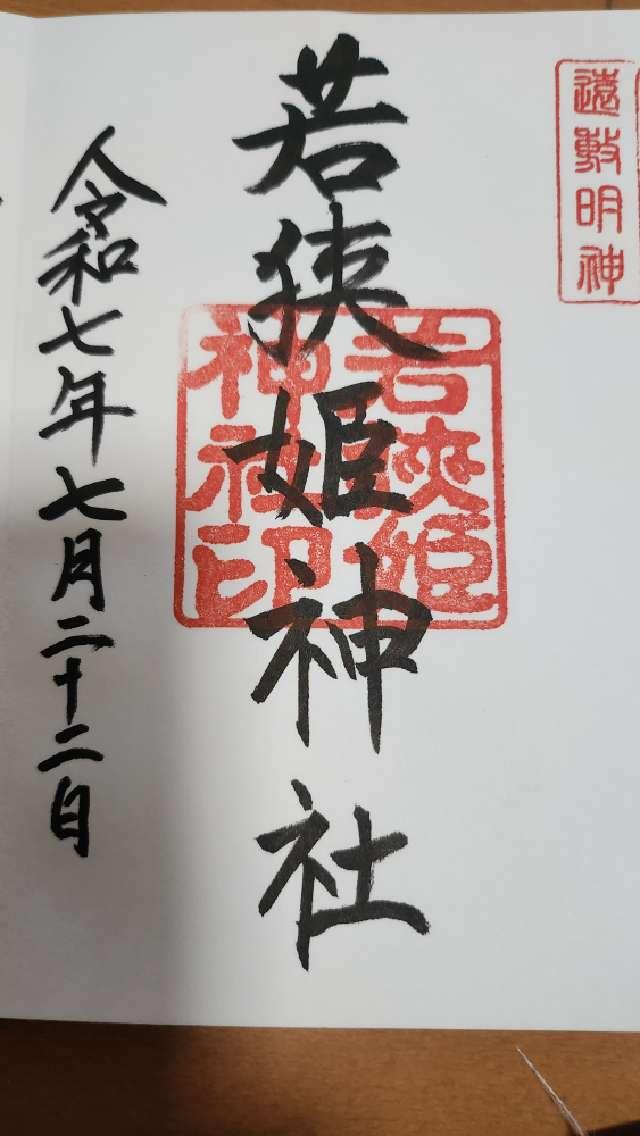 遠敷明神
若狭姫神社
若狹姫
神社印
令和七年七月二十二日